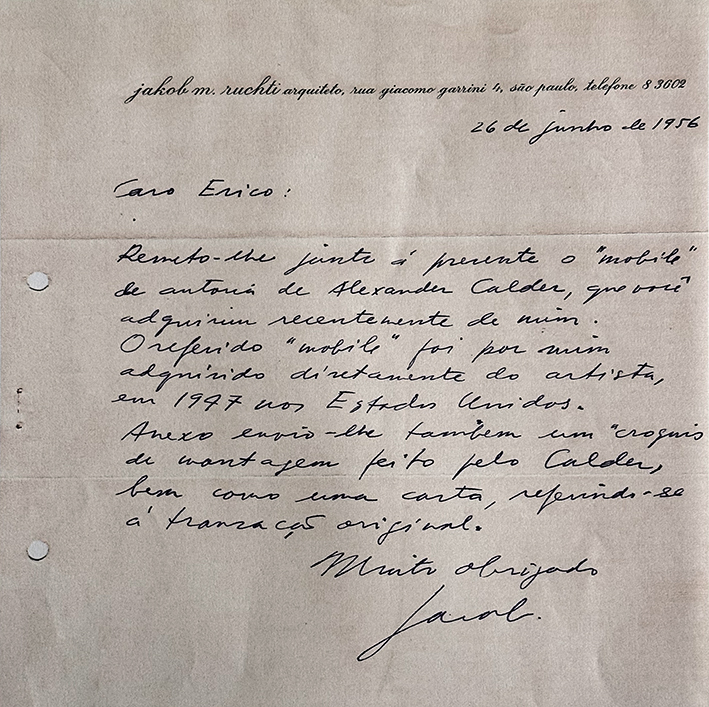 jakob m. ruchti arquiteto, rua giacomo garrini 4, são paulo, telefone 8 3602
26 de junho de 1956
Caro Erico:
Remeto-lhe junto á presente o "mobile"
de autoria de Alexander Calder, que você
adquiriu recentemente de mim.
O referido "mobile" foi por mim
adquirido diretamente do artista,
em 1947 nos Estados Unidos.
Anexo envio-lhe tambem um "croquis
de montagem feito pelo Calder,
bem como uma carta, referindo-se
á tranzação original.
Muito obrigado
Jacob.